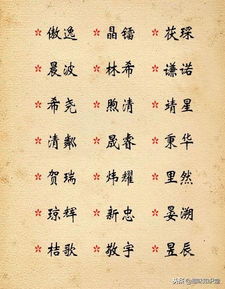 傲逸 晶镭 茯琛
晨波 林希 谦诺
希尧 煦清 靖星
清邺 晟睿 秉华
贺瑞 炜耀 里然
琼辉 新忠 晏溯
桔歌 敬宇 昱辰